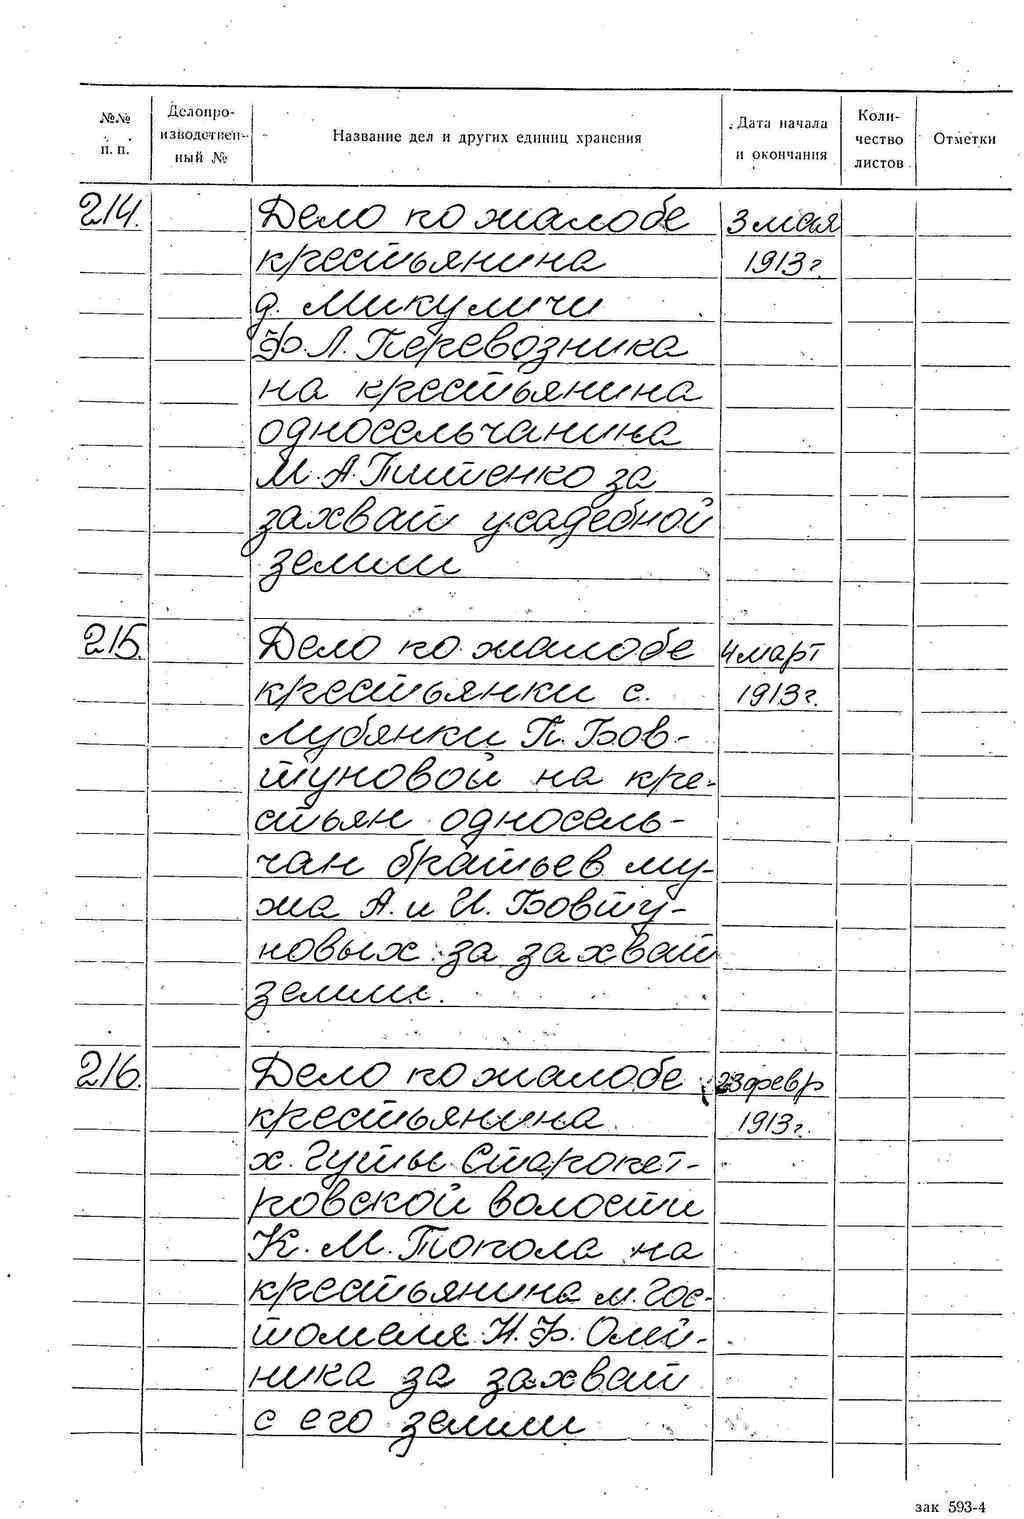 №№ п. п.
Делопроизводствен-ный №
Название дел и других единиц хранения
Дата начала и окончания
Количество листов
Отметки
214. Дело по жалобе 3 мая
крестьянина 1913 г.
д. Микуличи
Ф. Л. Перевозника
на крестьянина
односельчанина
М. А. Титенко за
захват усадебной
земли
215. Дело по жалобе 4 март
крестьянки с. 1913 г.
Лубянки П. Бов-
туновой на кре-
стьян односель-
чан братьев му-
жа А. и И. Бовту-
новых за захват
земли.
216. Дело по жалобе 23 февр
крестьянина 1913 г.
х. Гуты Старопет-
ровской волости
К. М. Топола на
крестьянина м. Гос-
томеля Н. Ф. Олей-
ника за захват
с его земли
зак 593-4